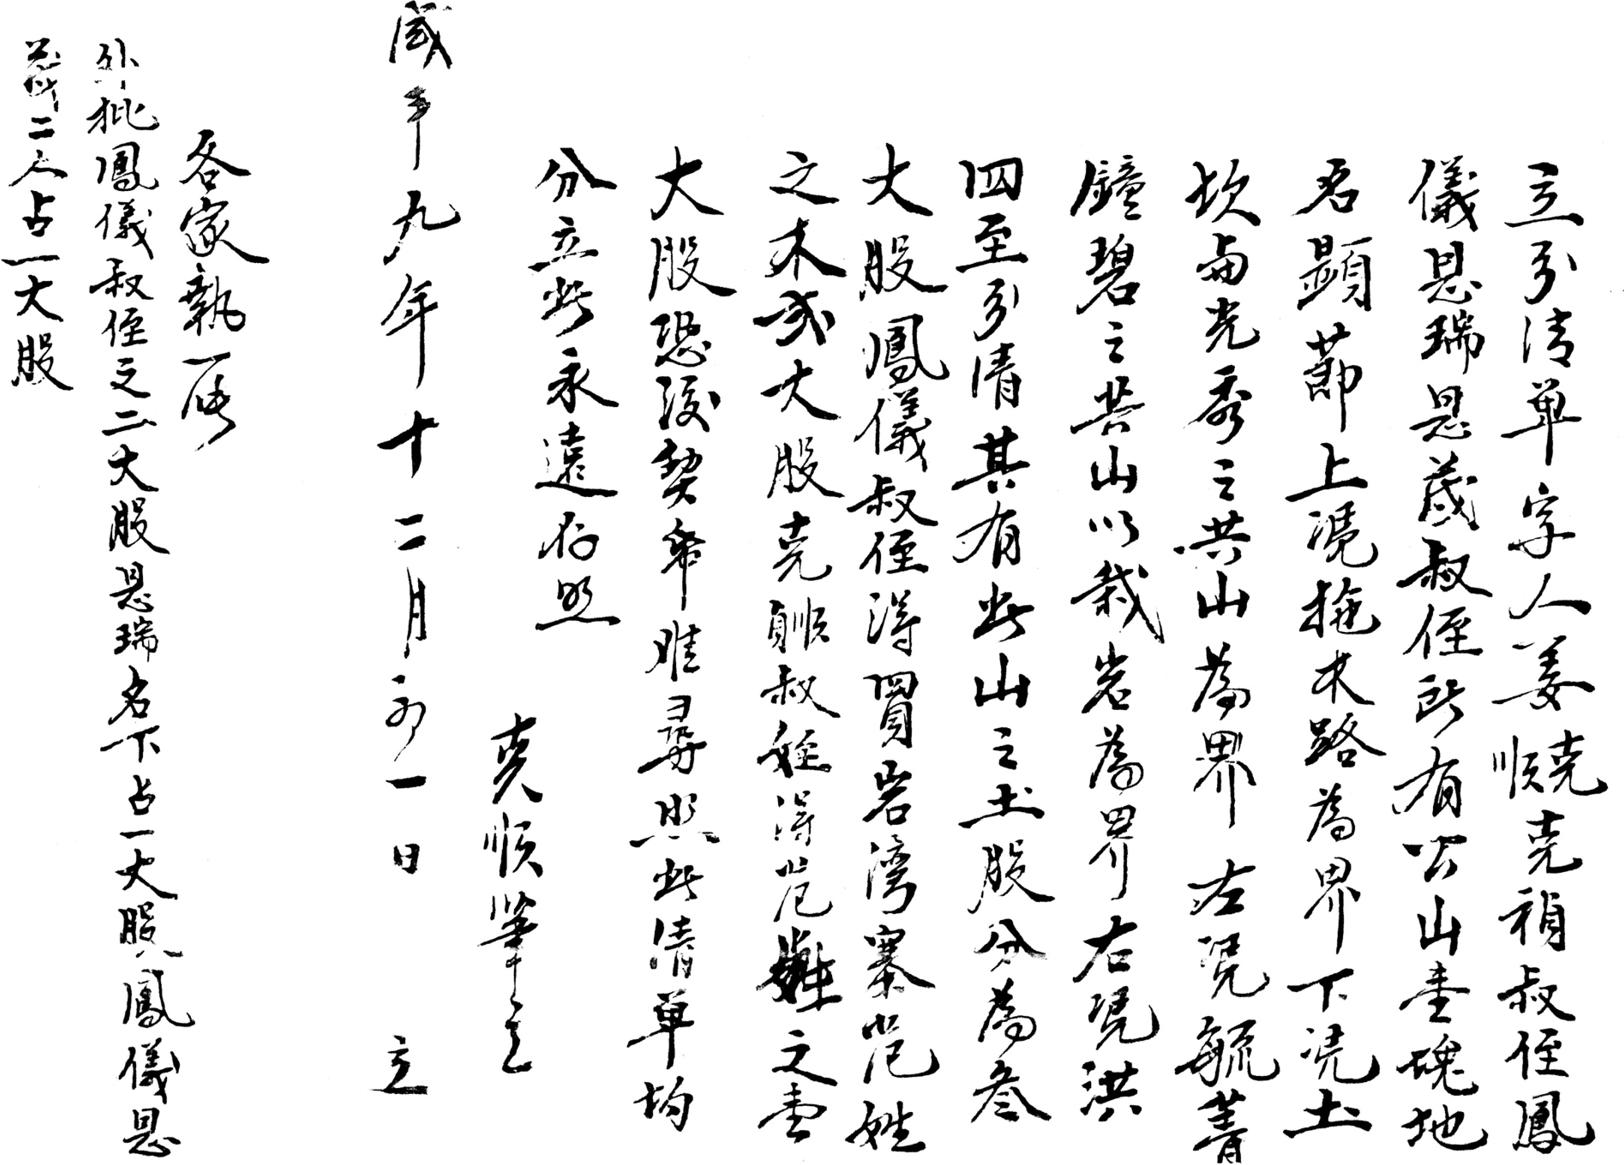 立分清單字人姜克順克禎叔侄鳳
儀恩瑞恩茂叔侄所有公山壹塊地
名顯節上憑拖木路為界下凴土
坎與光秀之共山為界左凴毓菁
鐘碧之共山以栽岩為界右凴洪
四至分清其有此山之土股分為叁
大股鳳儀叔侄得買岩灣寨范姓
之木貳大股克順叔侄得范姓之壹
大股恐後契率难尋照此清單均
分立此永遠存照
克順筆立
咸豐九年十二月初一日 立
各家執一張
外批鳳儀叔侄之二大股恩瑞名下占一大股鳳儀恩
茂二人占一大股